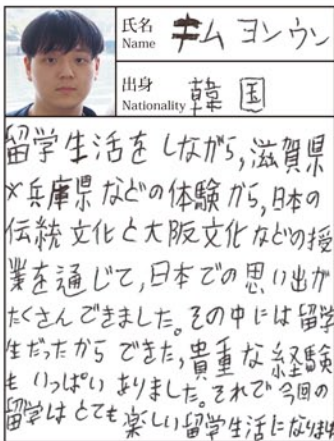 氏名 キム ヨンウン
Name
出身 韓国
Nationality
留学生活をしながら,滋賀県
×兵庫県などの体験から,日本の
伝統文化と大阪文化などの授
業を通じて,日本での思い出が
たくさんできました。その中には留学
生だったからできた,貴重な経験
もいっぱいありました。それで今回の
留学はとても楽しい留学生活になりました